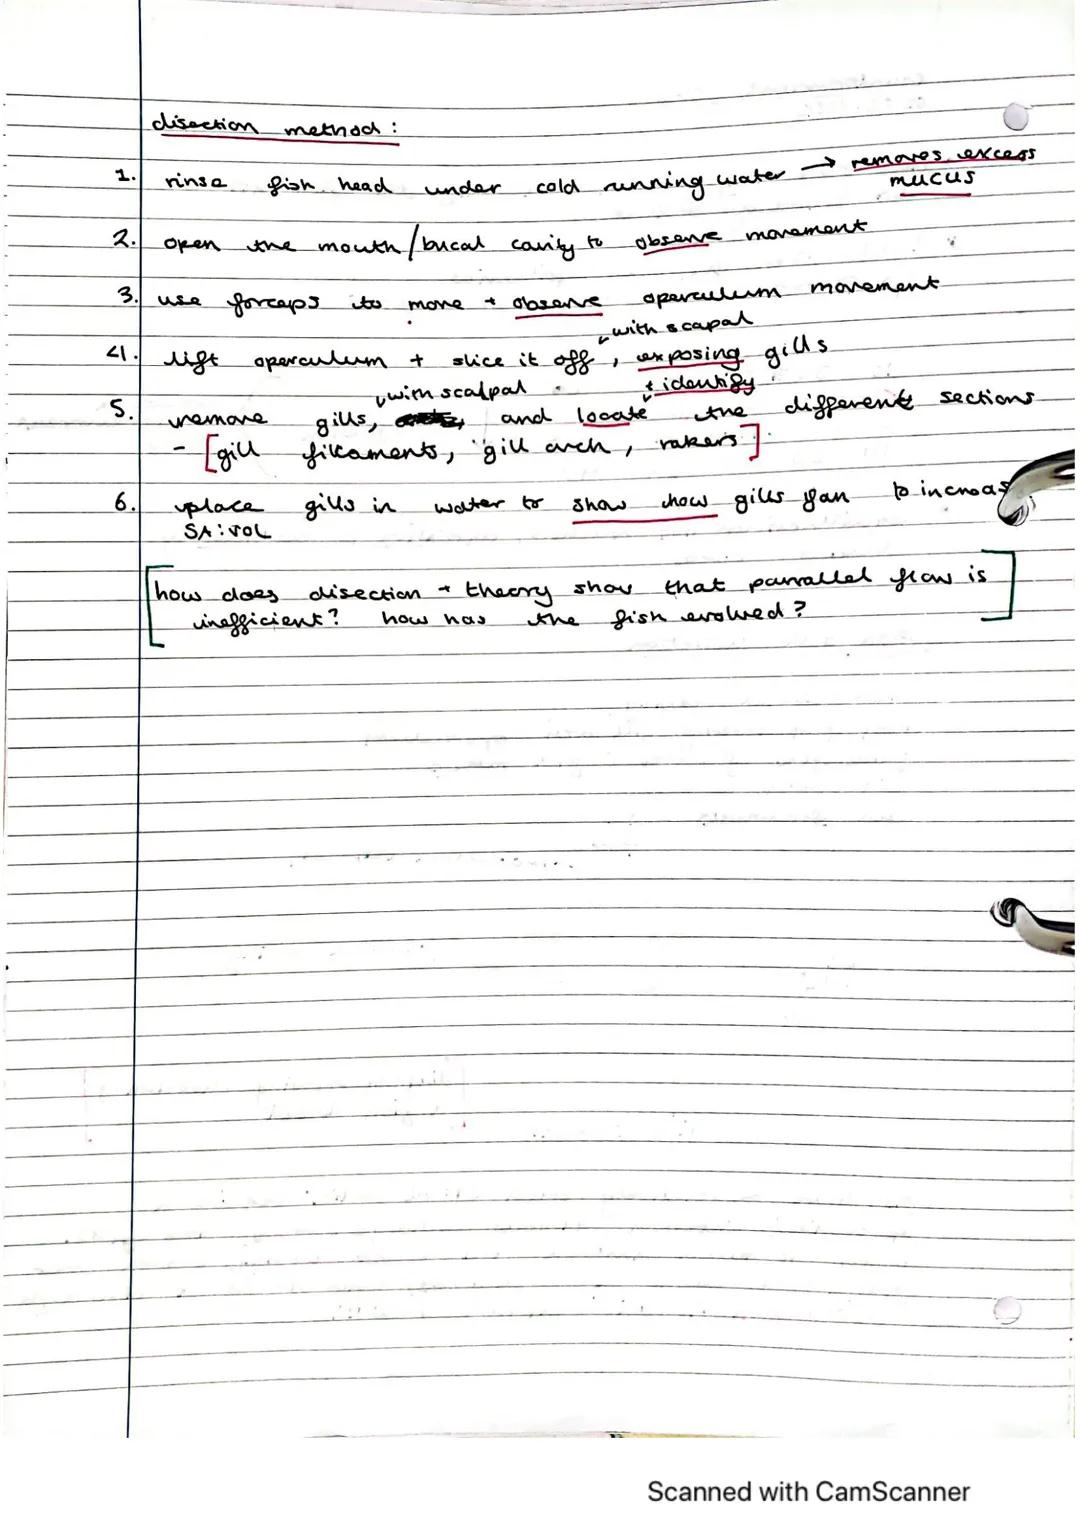 disection method :
1. rinse fish head under cold running water → removes excess
mucus
2. open the mouth/bucal cavity to observe movement
3. use forceps to move + observe operculum movement
with scapal
4. lift operculum + slice it off , exposing gills
with scalpal + identify
5. remove gills, and locate the different sections
- [gill filaments, gill arch, rakers]
6. place gills in water to show how gills fan to increas
SA:VOL
[how does disection + theory show that parrallel flow is
inefficient? how has the fish evolved?]
Scanned with CamScanner